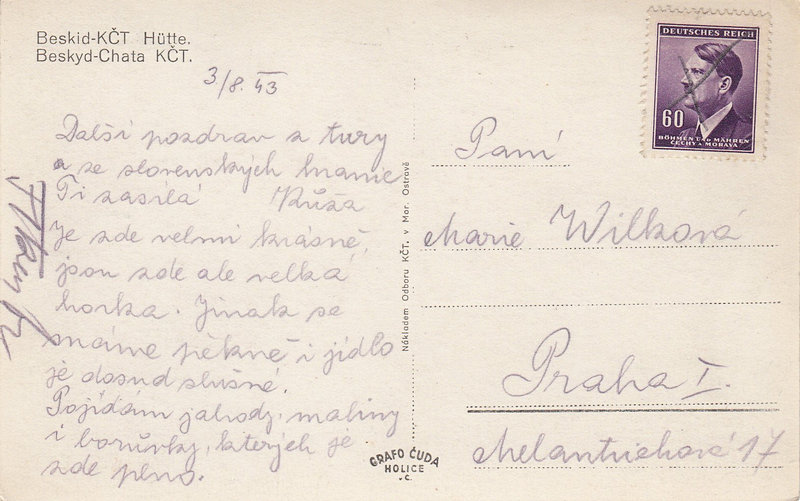 Beskid-KČT Hütte.
Beskyd-Chata KČT.
3/8. 43
Další pozdrav z tury
a ze slovenských hranic
Ti zasílá Růža
Je zde velmi krásně,
jsou zde ale velká
horka. Jinak se
máme pěkně i jídlo
je dosud slušné.
Pojídám jahody, maliny
i borůvky, kterých je
zde plno.
Nákladem Odboru KČT. v Mor. Ostravě
GRAFO ČUDA
HOLICE
v Č.
DEUTSCHES REICH
60
BÖHMEN U. MÄHREN
ČECHY A MORAVA
Paní
Marie Wilková
Praha I.
Melantrichová 17